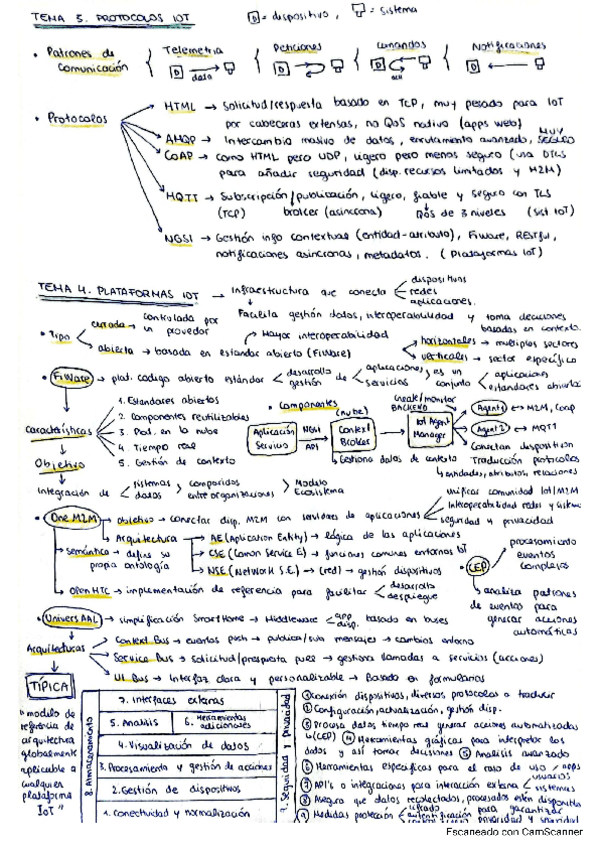 TEMA 3. PROTOCOLOS IOT
D = dispositivo, = sistema
• Patrones de comunicación
Telemetría
Peticiones
Comandos
Notificaciones
D data
D
D ack
D
• Protocolos
HTML → Solicitud/respuesta basado en TCP, muy pesado para IoT
por cabeceras extensas, no QoS nativo (apps web)
AMQP → Intercambio masivo de datos, enrutamiento avanzado, MUY SEGURO
CoAP → como HTML pero UDP, ligero pero menos seguro (usa DTLS
para añadir seguridad (disp. recursos limitados y M2M)
MQTT → Subscripción/publicación, ligero, fiable y seguro con TLS
(TCP) broker (asíncrona) QoS de 3 niveles (sist IoT)
NGSI → Gestión info contextual (entidad-atributo), Fiware, RESTful,
notificaciones asíncronas, metadatos. (Plataformas IoT)
TEMA 4. PLATAFORMAS IOT → Infraestructura que conecta
dispositivos
redes
aplicaciones.
Facilita gestión datos, interoperabilidad y toma decisiones
basadas en contexto.
• Tipo
cerrada → controlada por un provedor
abierta → basada en estandar abierto (FiWare)
Mayor interoperabilidad
horizontales → multiples sectores
verticales → sector específico
• FiWare → plat. codigo abierto estándar
desarrollo de gestión
aplicaciones
servicios
es un conjunto
aplicaciones
estandares abiertos
Características
1. Estandares abiertos
2. Componentes reutilizables
3. Plat. en la nube
4. Tiempo real
5. Gestión de contexto
• Componentes
(nube)
Aplicación Servicio
NGSI
API
Context Broker
Gestiona datos de contexto
entidades, atributos, relaciones
Create/monitor
BACKEND
IoT Agent Manager
Agent 1 ↔ M2M, Coap
Agent 2 ↔ MQTT
Conectan dispositivos
Traducción protocolos
Objetivo
Integración de
sistemas
datos
compartidos
entre organizaciones
Modulo
Ecosistema
• One M2M → Objetivo → conectar disp. M2M con servidores de aplicaciones
Unificar comunidad IoT/M2M
Interoperabilidad redes y
seguridad y privacidad
Arquitectura → AE (Aplication Entity) → lógica de las aplicaciones
CSE (Comon Service E) → funciones comunes entornos IoT
NSE (Network S.E.) → (red) → gestión dispositivos
semántica → define su propia ontología
OpenMTC → implementación de referencia para facilitar
desarrollo
despliegue
• CEP
procesamiento
eventos
complejos
analiza patrones
de eventos para
generar acciones
automáticas
• Univers AAL → simplificación Smart Home → Middleware
app
disp
basado en buses
Arquitecturas
Context Bus → eventos push → publica/sub mensajes → cambios entorno
Service Bus → solicitud/respuesta pull → gestiona llamadas a servicios (acciones)
UI Bus → Interfaz clara y personalizable → Basado en formularios
TÍPICA
"modelo de
referencia de
arquitectura
globalmente
aplicable a
cualquier
plataforma
IoT"
8. Almacenamiento
7. Interfaces externas
5. Analisis
6. Herramientas adicionales
4. Visualización de datos
3. Procesamiento y gestión de acciones
2. Gestión de dispositivos
1. Conectividad y normalización
9. Seguridad y privacidad
① Conexión dispositivos, diversos protocolos a traducir
② Configuración, actualización, gestión disp.
③ Procesa datos tiempo real generar acciones automatizadas
(CEP) ④ Herramientas gráficas para interpretar los
datos y así tomar decisiones ⑤ Analisis avanzado
⑥ Herramientas específicas para el caso de uso / apps
⑦ API's o integraciones para interacción externa
usuarios
sistemas
⑧ Asegura que datos recolectados, procesados estén disponibles
⑨ Medidas protección
cifrado
autentificación
para garantizar
privacidad y seguridad
Escaneado con CamScanner